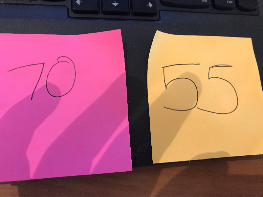 70
55